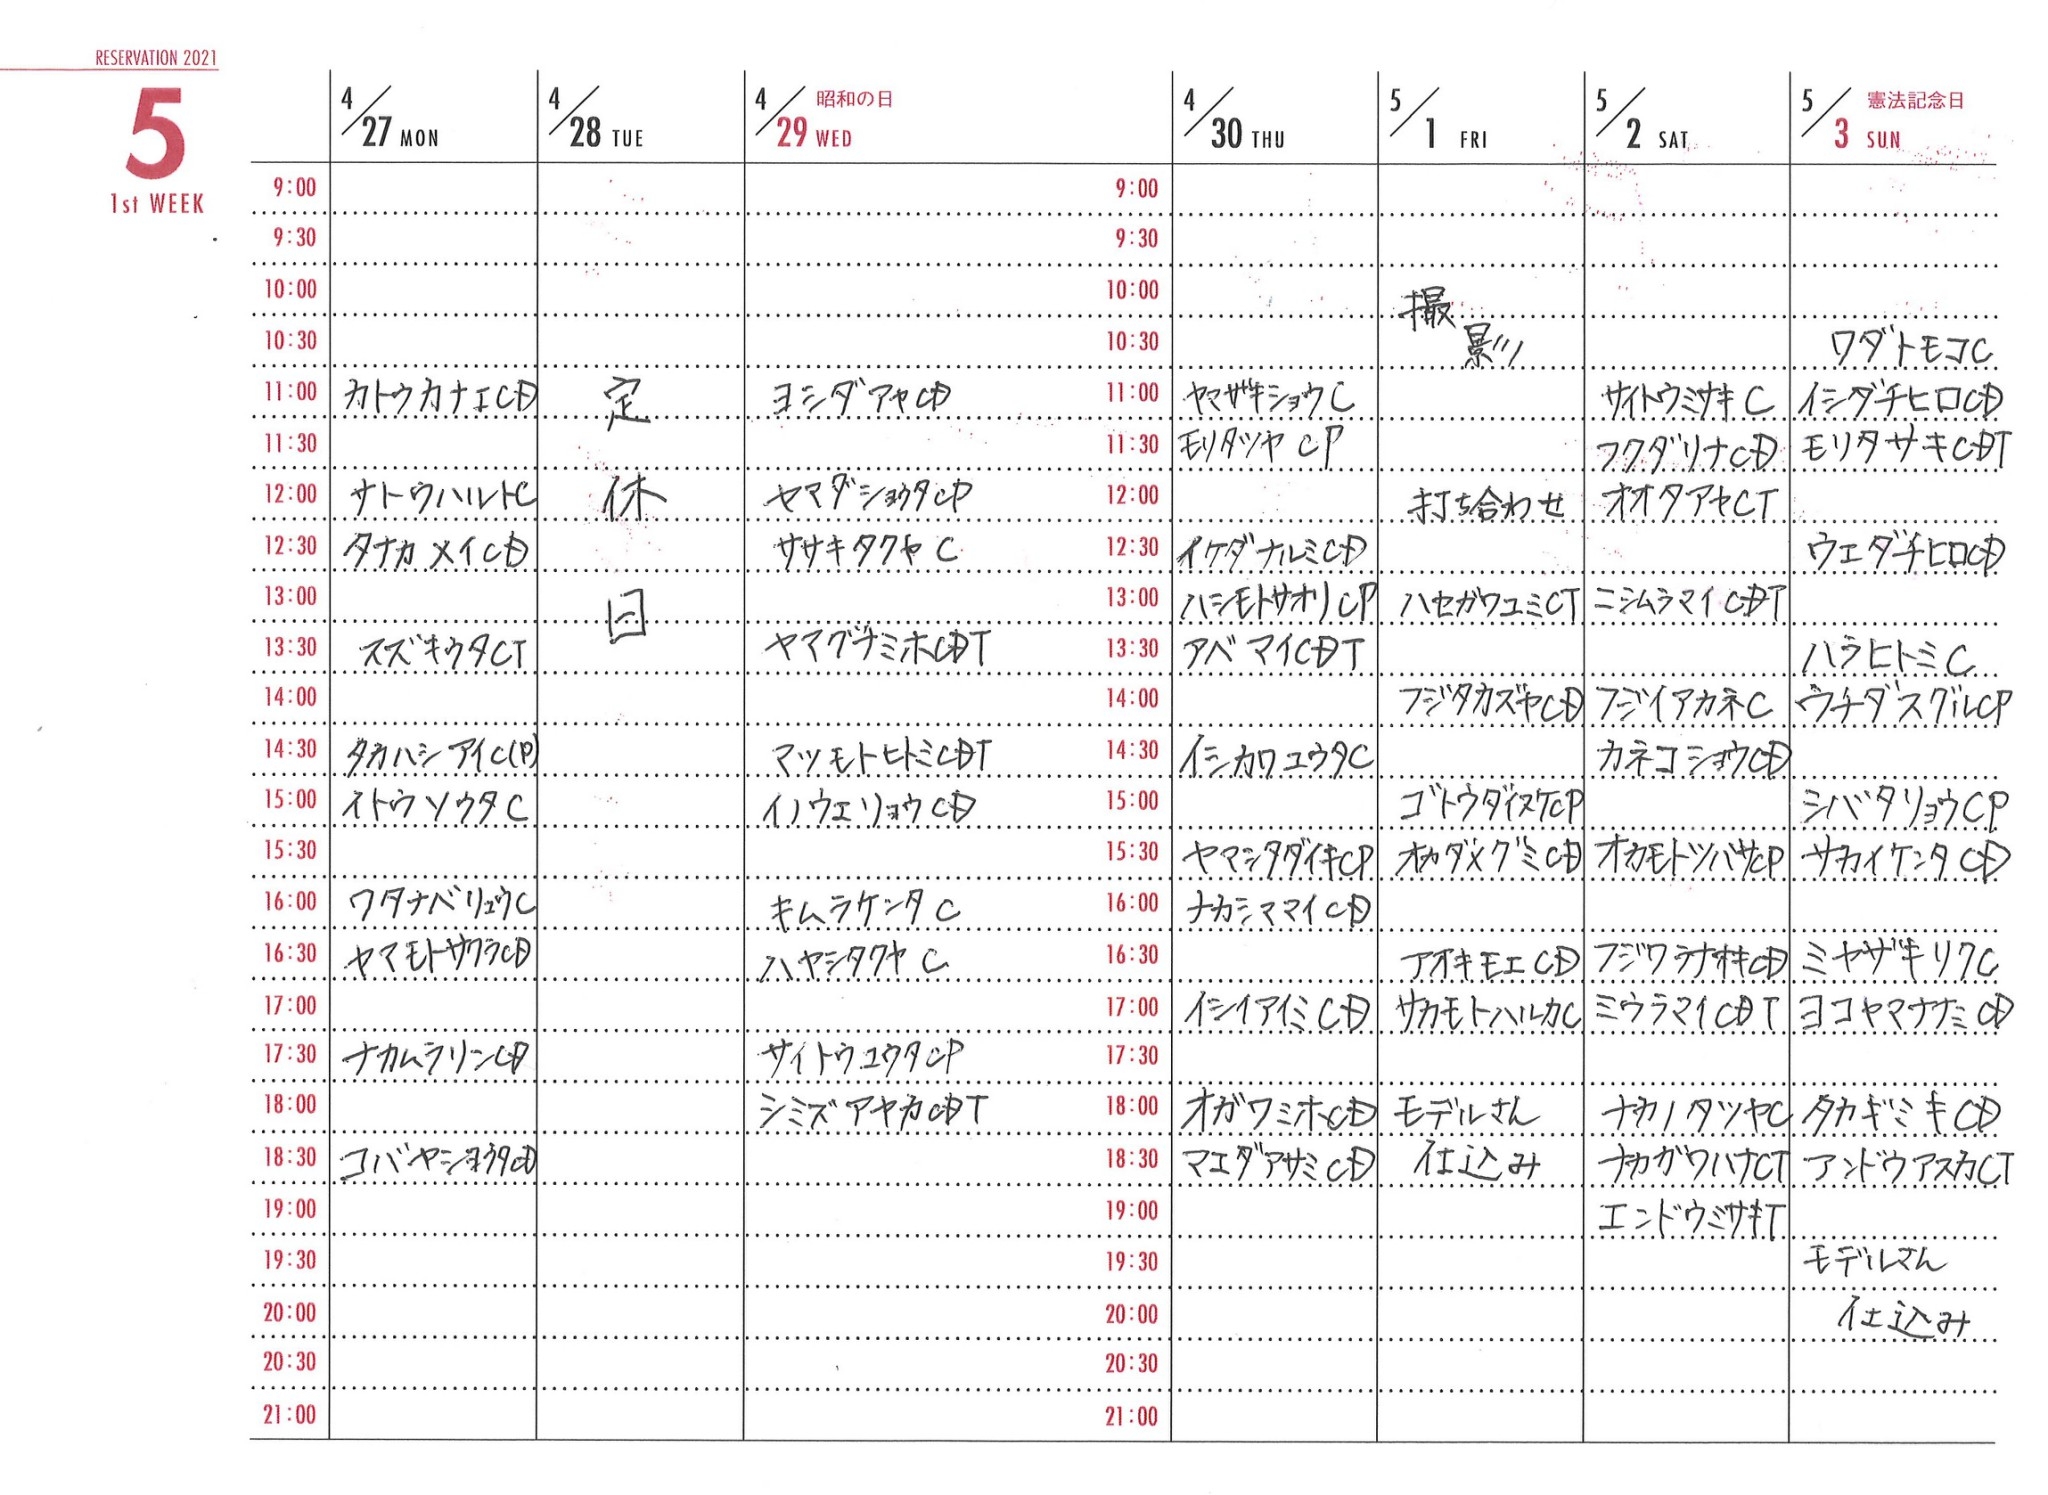 RESERVATION 2021
5
1st WEEK
4/27 MON 4/28 TUE 4/29 WED 昭和の日 4/30 THU 5/1 FRI 5/2 SAT 5/3 SUN 憲法記念日
9:00 9:00
9:30 9:30
10:00 10:00 撮
10:30 10:30 影 ワダトモコC
11:00 カトウカナエCD 定 ヨシダアヤCD 11:00 ヤマザキショウC サイトウミサキC イシダチヒロCD
11:30 11:30 モリタツヤCP フクダリナCD モリタサキCDT
12:00 サトウハルトC 休 ヤマダショウタCP 12:00 打ち合わせ オオタアヤCT
12:30 タナカメイCD ササキタクヤC 12:30 イケダナルミCD ウエダチヒロCD
13:00 日 13:00 ハシモトサオリCP ハセガワユミCT ニシムラマイCDT
13:30 スズキウタCT ヤマグチミホCDT 13:30 アベマイCDT ハラヒトミC
14:00 14:00 フジタカズヤCD フジイアカネC ウチダスグルCP
14:30 タカハシアイC(P) マツモトヒトミCDT 14:30 イシカワユウタC カネコショウCD
15:00 イトウソウタC イノウエリョウCD 15:00 ゴトウダイスケCP シバタリョウCP
15:30 15:30 ヤマシタダイキCP オカダメグミCD オカモトツバサCP サカイケンタCD
16:00 ワタナベリュウC キムラケンタC 16:00 ナカシママイCD
16:30 ヤマモトサクラCD ハヤシタクヤC 16:30 アオキモエCD フジワラナオキCD ミヤザキリクC
17:00 17:00 イシイアイミCD サカモトハルカC ミウラマイCDT ヨコヤマナナミCD
17:30 ナカムラリンCD サイトウユウタCP 17:30
18:00 シミズアヤカCDT 18:00 オガワミホCD モデルさん ナカノタツヤC タカギミキCD
18:30 コバヤシショウタCD 18:30 マエダアサミCD 仕込み ナカガワハナCT アンドウアスカCT
19:00 19:00 エンドウミサキT
19:30 19:30 モデルさん
20:00 20:00 仕込み
20:30 20:30
21:00 21:00